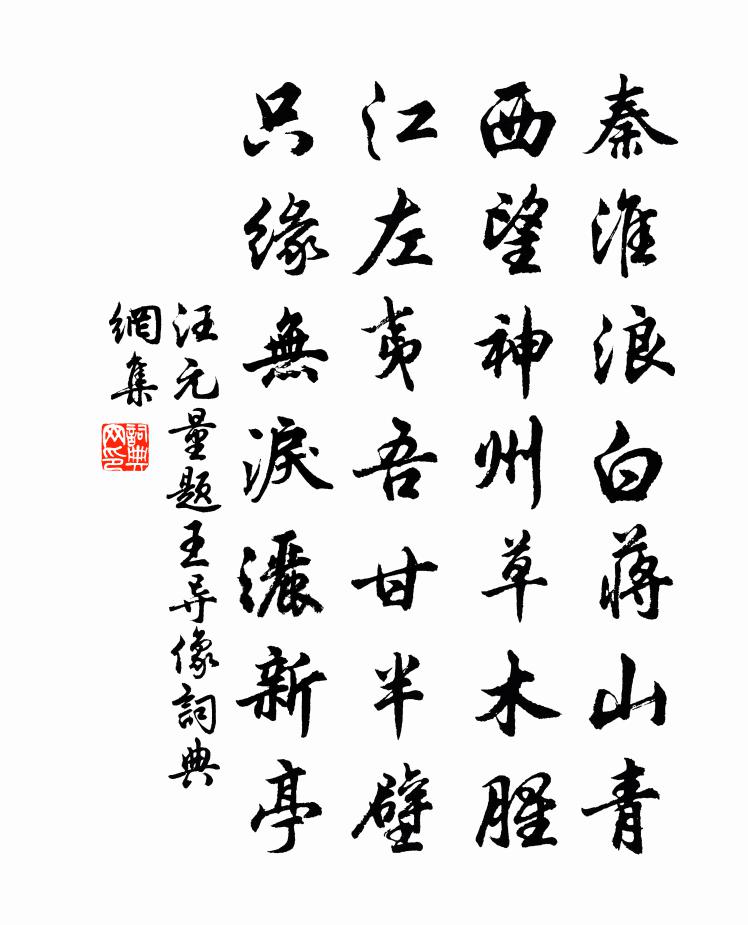 秦淮浪白蒋山青
西望神州草木腥
江左夷吾甘半壁
只缘無淚灑新亭
汪元量题王导像詞典
網集
詞典
网印